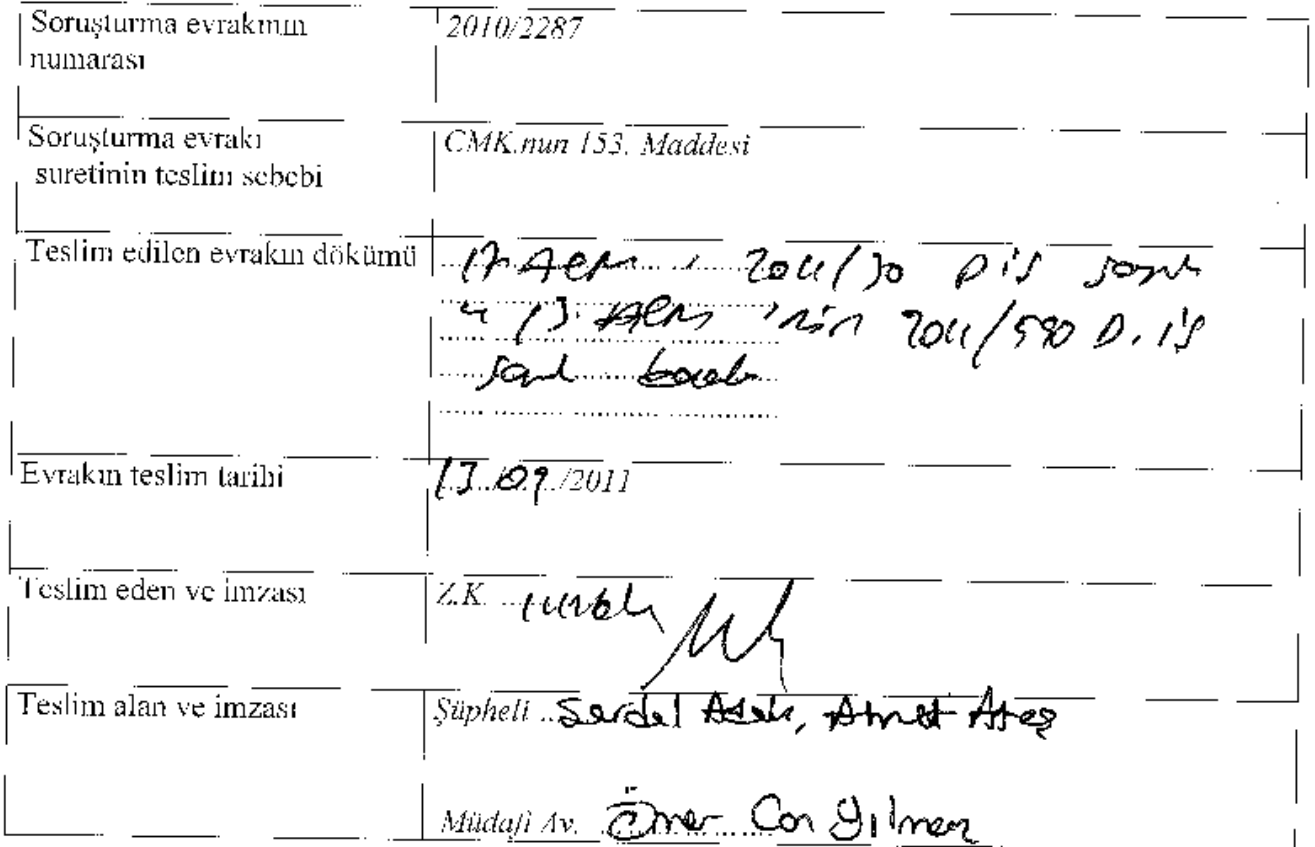 Soruşturma evrakının numarası 2010/2287
Soruşturma evrakı suretinin teslim sebebi CMK.nun 153. Maddesi
Teslim edilen evrakın dökümü
17. ACM 2011/30 D.iş sayılı
13. ACM 'nin 2011/590 D.iş
sayılı
Evrakın teslim tarihi 13/09/2011
Teslim eden ve imzası Z.K.
Teslim alan ve imzası Şüpheli Serdal Ahmet Ateş
Müdafi Av. Ömer Can Yılmaz